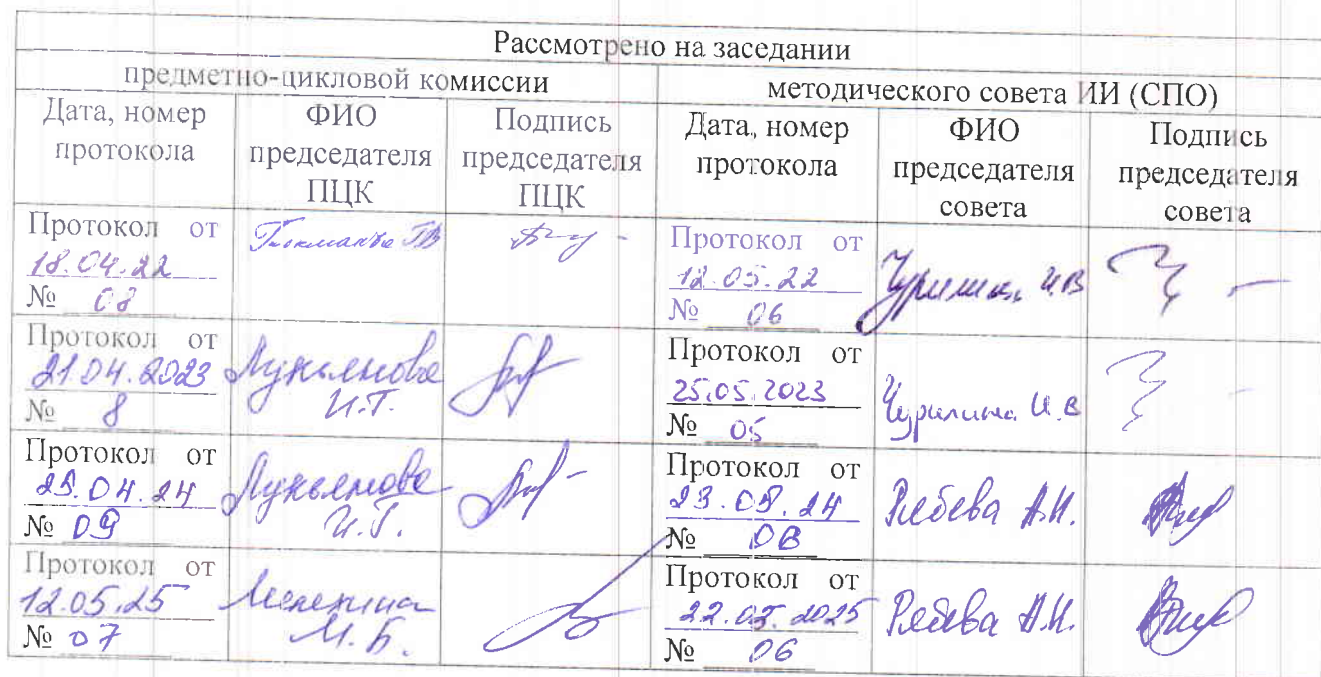 Рассмотрено на заседании
предметно-цикловой комиссии
методического совета ИИ (СПО)
Дата, номер протокола
ФИО председателя ПЦК
Подпись председателя ПЦК
Дата, номер протокола
ФИО председателя совета
Подпись председателя совета
Протокол от
18.04.22
№ 08
Протокол от
12.05.22
№ 06
Чурилина И.В
Протокол от
21.04.2023
№ 8
Лукьянова
И.Г.
Протокол от
25.05.2023
№ 05
Чурилина И.В
Протокол от
25.04.24
№ 09
Лукьянова
И.Г.
Протокол от
23.05.24
№ 06
Рябева А.И.
Протокол от
12.05.25
№ 07
М.Б.
Протокол от
22.05.2025
№ 06
Рябева А.И.